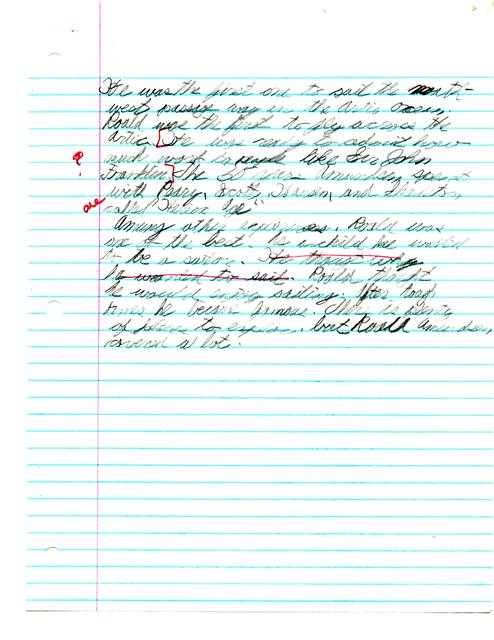 He was the first one to sail the north-
west passage way in the Artic Ocean,
Roald was the first to fly across the
Artic. [He was ready to admit how
much work people like Sir John
Franklin] The 30 years Amundsen spent
with Peary, Scott, Nansen, and
called
Among other explorers, Roald was
one of the best. As a child he wanted
to be a sailor. He why
he wanted to sail. Roald thought
he would enjoy sailing. After tough
times he became famous. There is plenty
of places to explore, but Roald Amundsen
covered a lot.
?
are